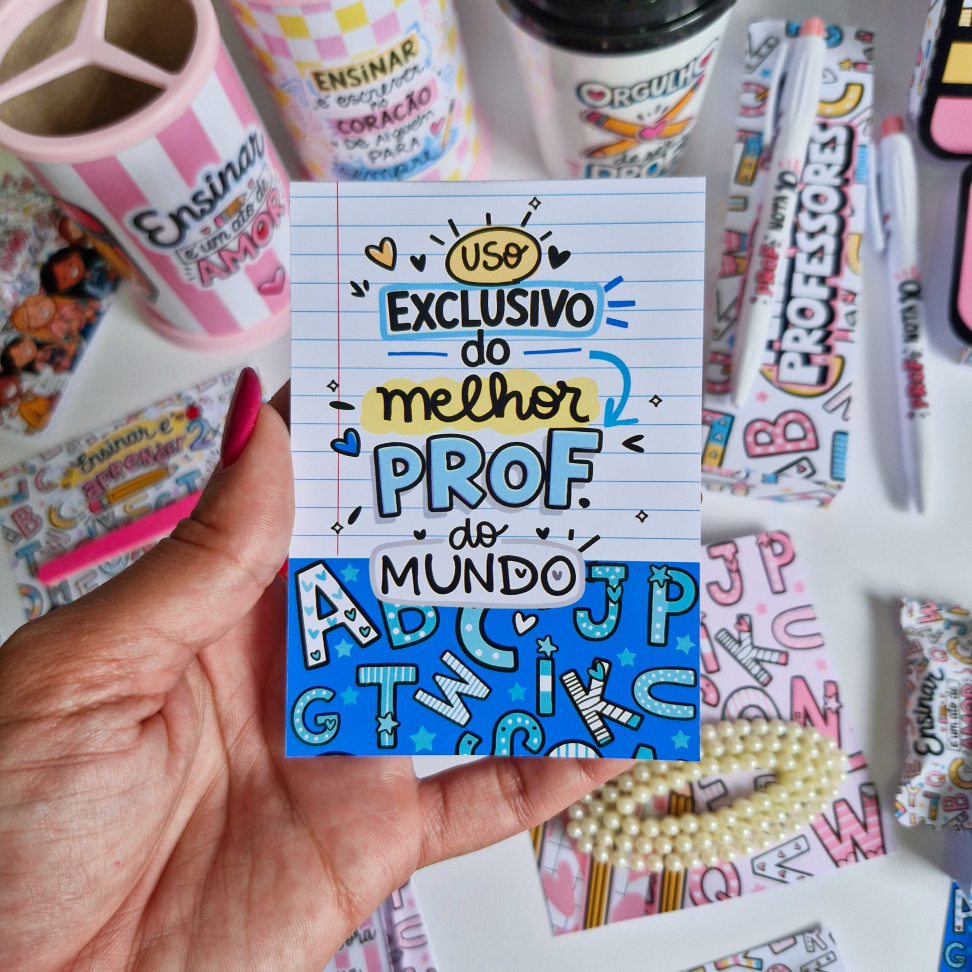 USO
EXCLUSIVO
do
melhor
PROF.
do
MUNDO
A B C J P
G T W I K C
S
Ensinar
é um ato de
AMOR
ENSINAR
é escrever
no
CORAÇÃO
DE alguém
PARA
sempre
ORGULHO
de ser
PROF
PROFESSORES
Ensinar é
aprender 2
Ensinar
é um ato de